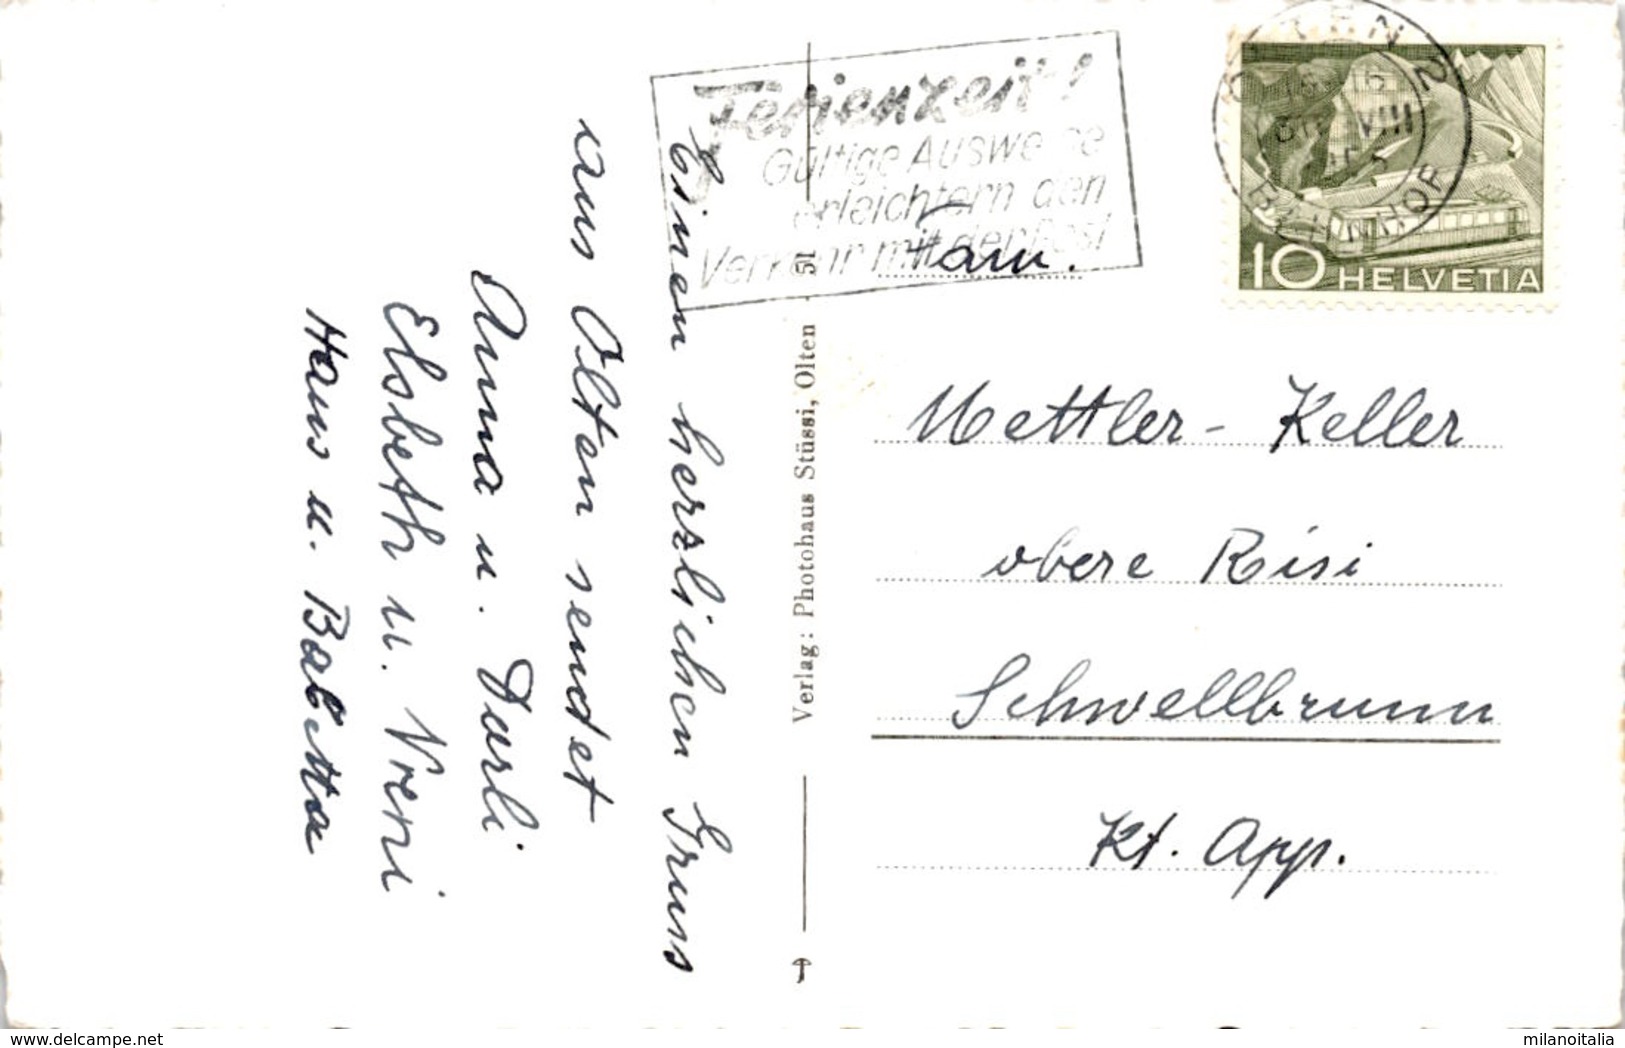 Einen herzlichen Gruss
aus Olten sendet
Anna u. Durli
Elsbeth u. Vreni
Hans u. Babetta
Verlag: Photohaus Stüssi, Olten
51
Ferienzeit!
Gültige Ausweise
erleichtern den
Verkehr mit der Post
OLTEN 2
VIII
BAHNHOF
10 HELVETIA
Fam.
Mettler - Keller
obere Risi
Schwellbrunn
Kt. App.
delcampe.net
milanoitalia